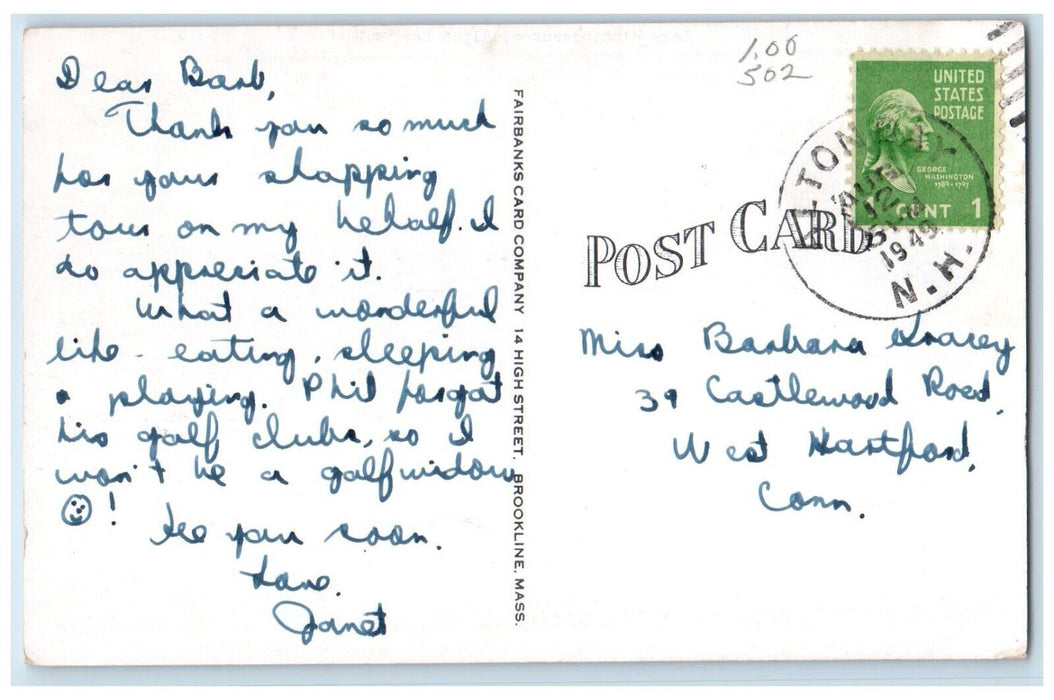 Dear Barb,
Thank you so much
for your shopping
tour on my behalf. I
do appreciate it.
What a wonderful
life - eating, sleeping
& playing. Phil forgot
his golf clubs, so I
won't be a golf widow
!
See you soon.
Love.
Janet
FAIRBANKS CARD COMPANY 14 HIGH STREET, BROOKLINE, MASS.
1.00
502
UNITED
STATES
POSTAGE
GEORGE
WASHINGTON
1789-1797
1 CENT
1949
N.H.
POST CARD
Miss Barbara
39 Castlewood Road,
West Hartford,
Conn.